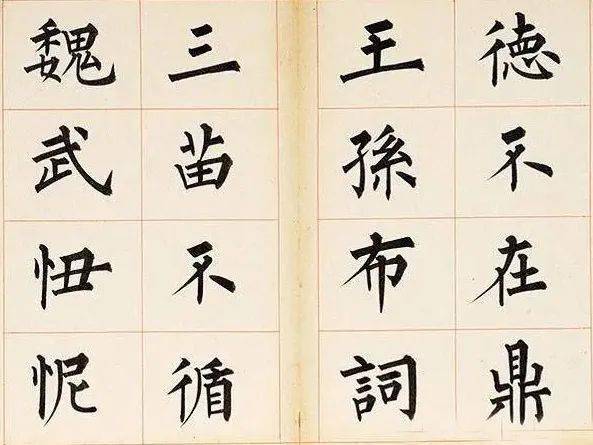 德不在鼎
王孫布詞
三苗不循
魏武忸怩